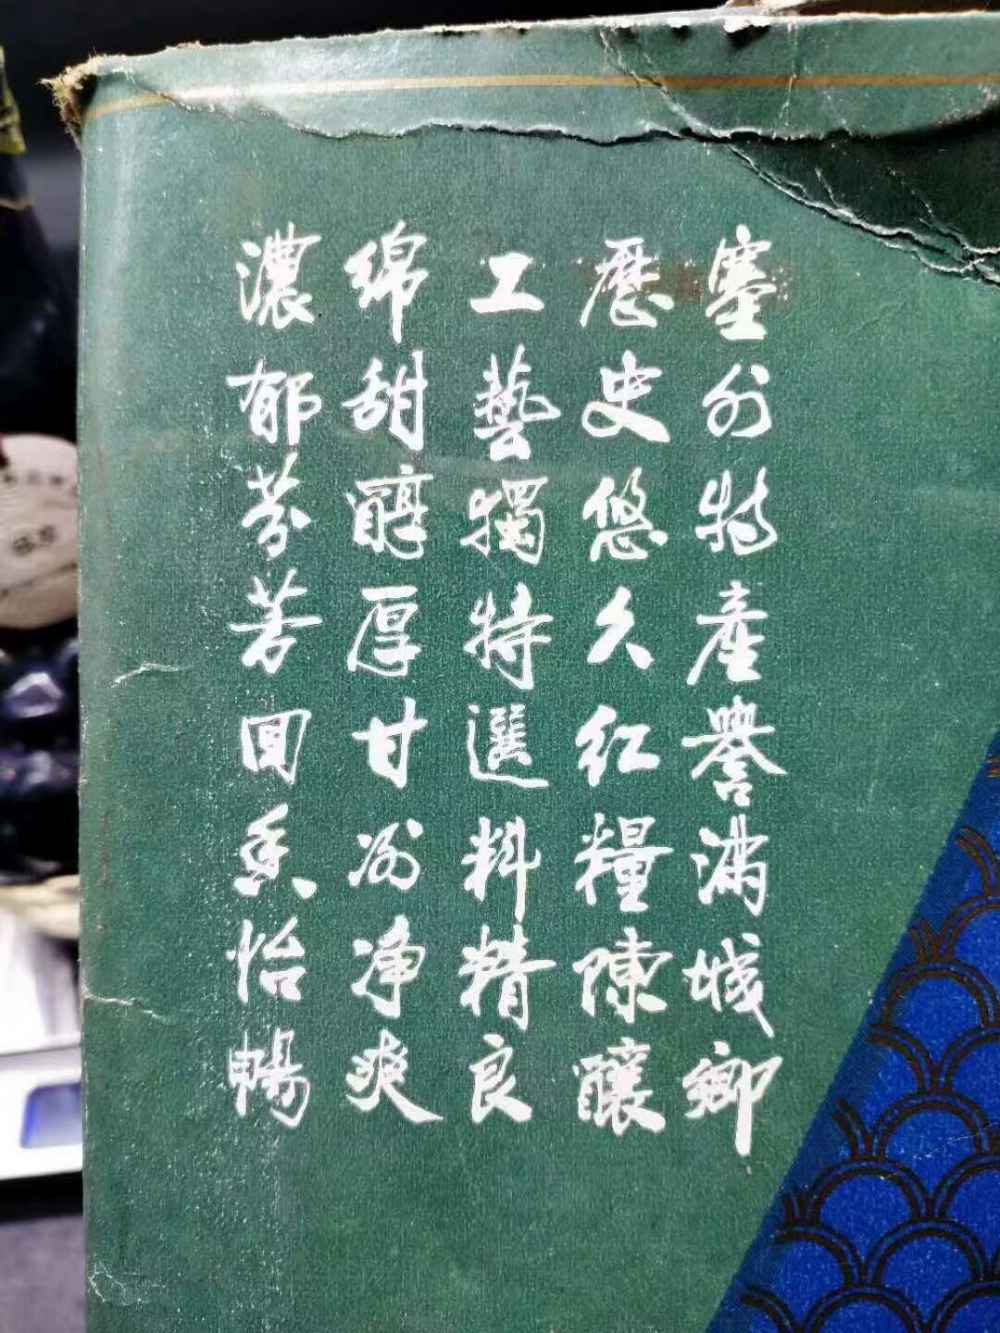 塞外特產譽滿城鄉
歷史悠久紅糧陳釀
工藝獨特選料精良
綿甜醇厚甘冽净爽
濃郁芬芳回香怡暢